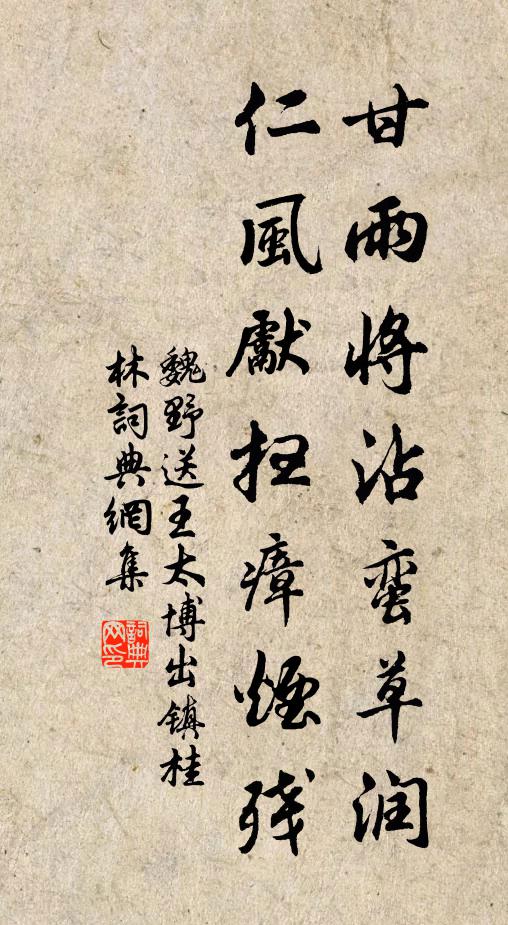 甘雨将沾蛮草润
仁風獻扫瘴煙残
魏野送王太博出镇桂
林詞典網集
詞典网印